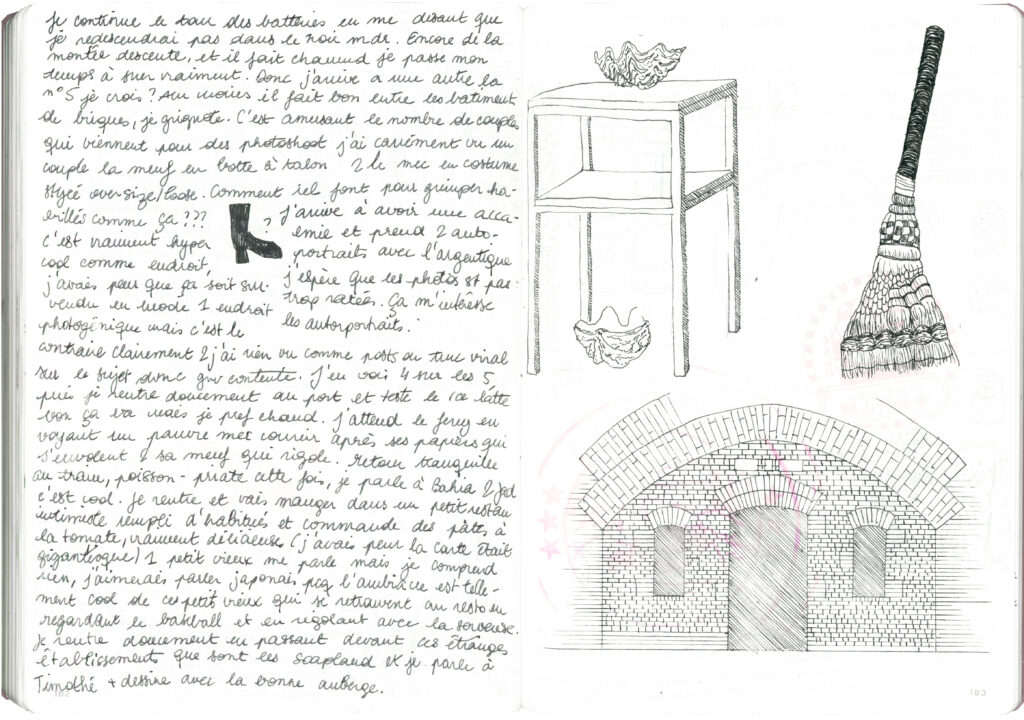 Je continue le tour des batteries en me disant que
je redescendrai pas dans le noir mdr. Encore de la
montée descente, et il fait chauuud je passe mon
temps à suer vraiment. Donc j'arrive a une autre la
n°5 je crois ? Au moins il fait bon entre les batiment
de briques, je grignote. C'est amusant le nombre de couples
qui viennent pour des photoshoot j'ai carrément vu un
couple la meuf en botte à talon & le mec en costume
stylé oversize/loose. Comment iel font pour grimper ha-
billés comme ça ???
c'est vraiment hyper
cool comme endroit,
j'avais peur que ça soit sur-
vendu en mode 1 endroit
photogénique mais c'est le
?
J'arrive à avoir une acca-
lmie et prend 2 auto-
portraits avec l'argentique
j'espère que les photos st pas
trop ratées. Ça m'intéresse
les autoportraits.
contraire clairement & j'ai rien vu comme posts ou truc viral
sur le sujet donc contente. J'en vois 4 sur les 5
puis je rentre doucement au port et teste le ice latte
bon ça va mais je pref chaud. J'attend le ferry en
voyant un pauvre mec courir après ses papiers qui
s'envolent & sa meuf qui rigole. Retour tranquille
au train, poisson-pirate cette fois, je parle à Bahia & Jad
c'est cool. Je rentre et vais manger dans un petit restau
intimiste rempli d'habitués et commande des pâtes à
la tomate, vraiment délicieuse (j'avais peur la carte était
gigantesque) 1 petit vieux me parle mais je comprend
rien, j'aimerais parler japonais pcq l'ambiance est telle-
ment cool de ces petit vieux qui se retrouvent au resto en
regardant le baseball et en rigolant avec la serveuse.
Je rentre doucement en passant devant ces étranges
établissements que sont les soapland et je parle à
Timothé + dessine avec la bonne auberge.
183